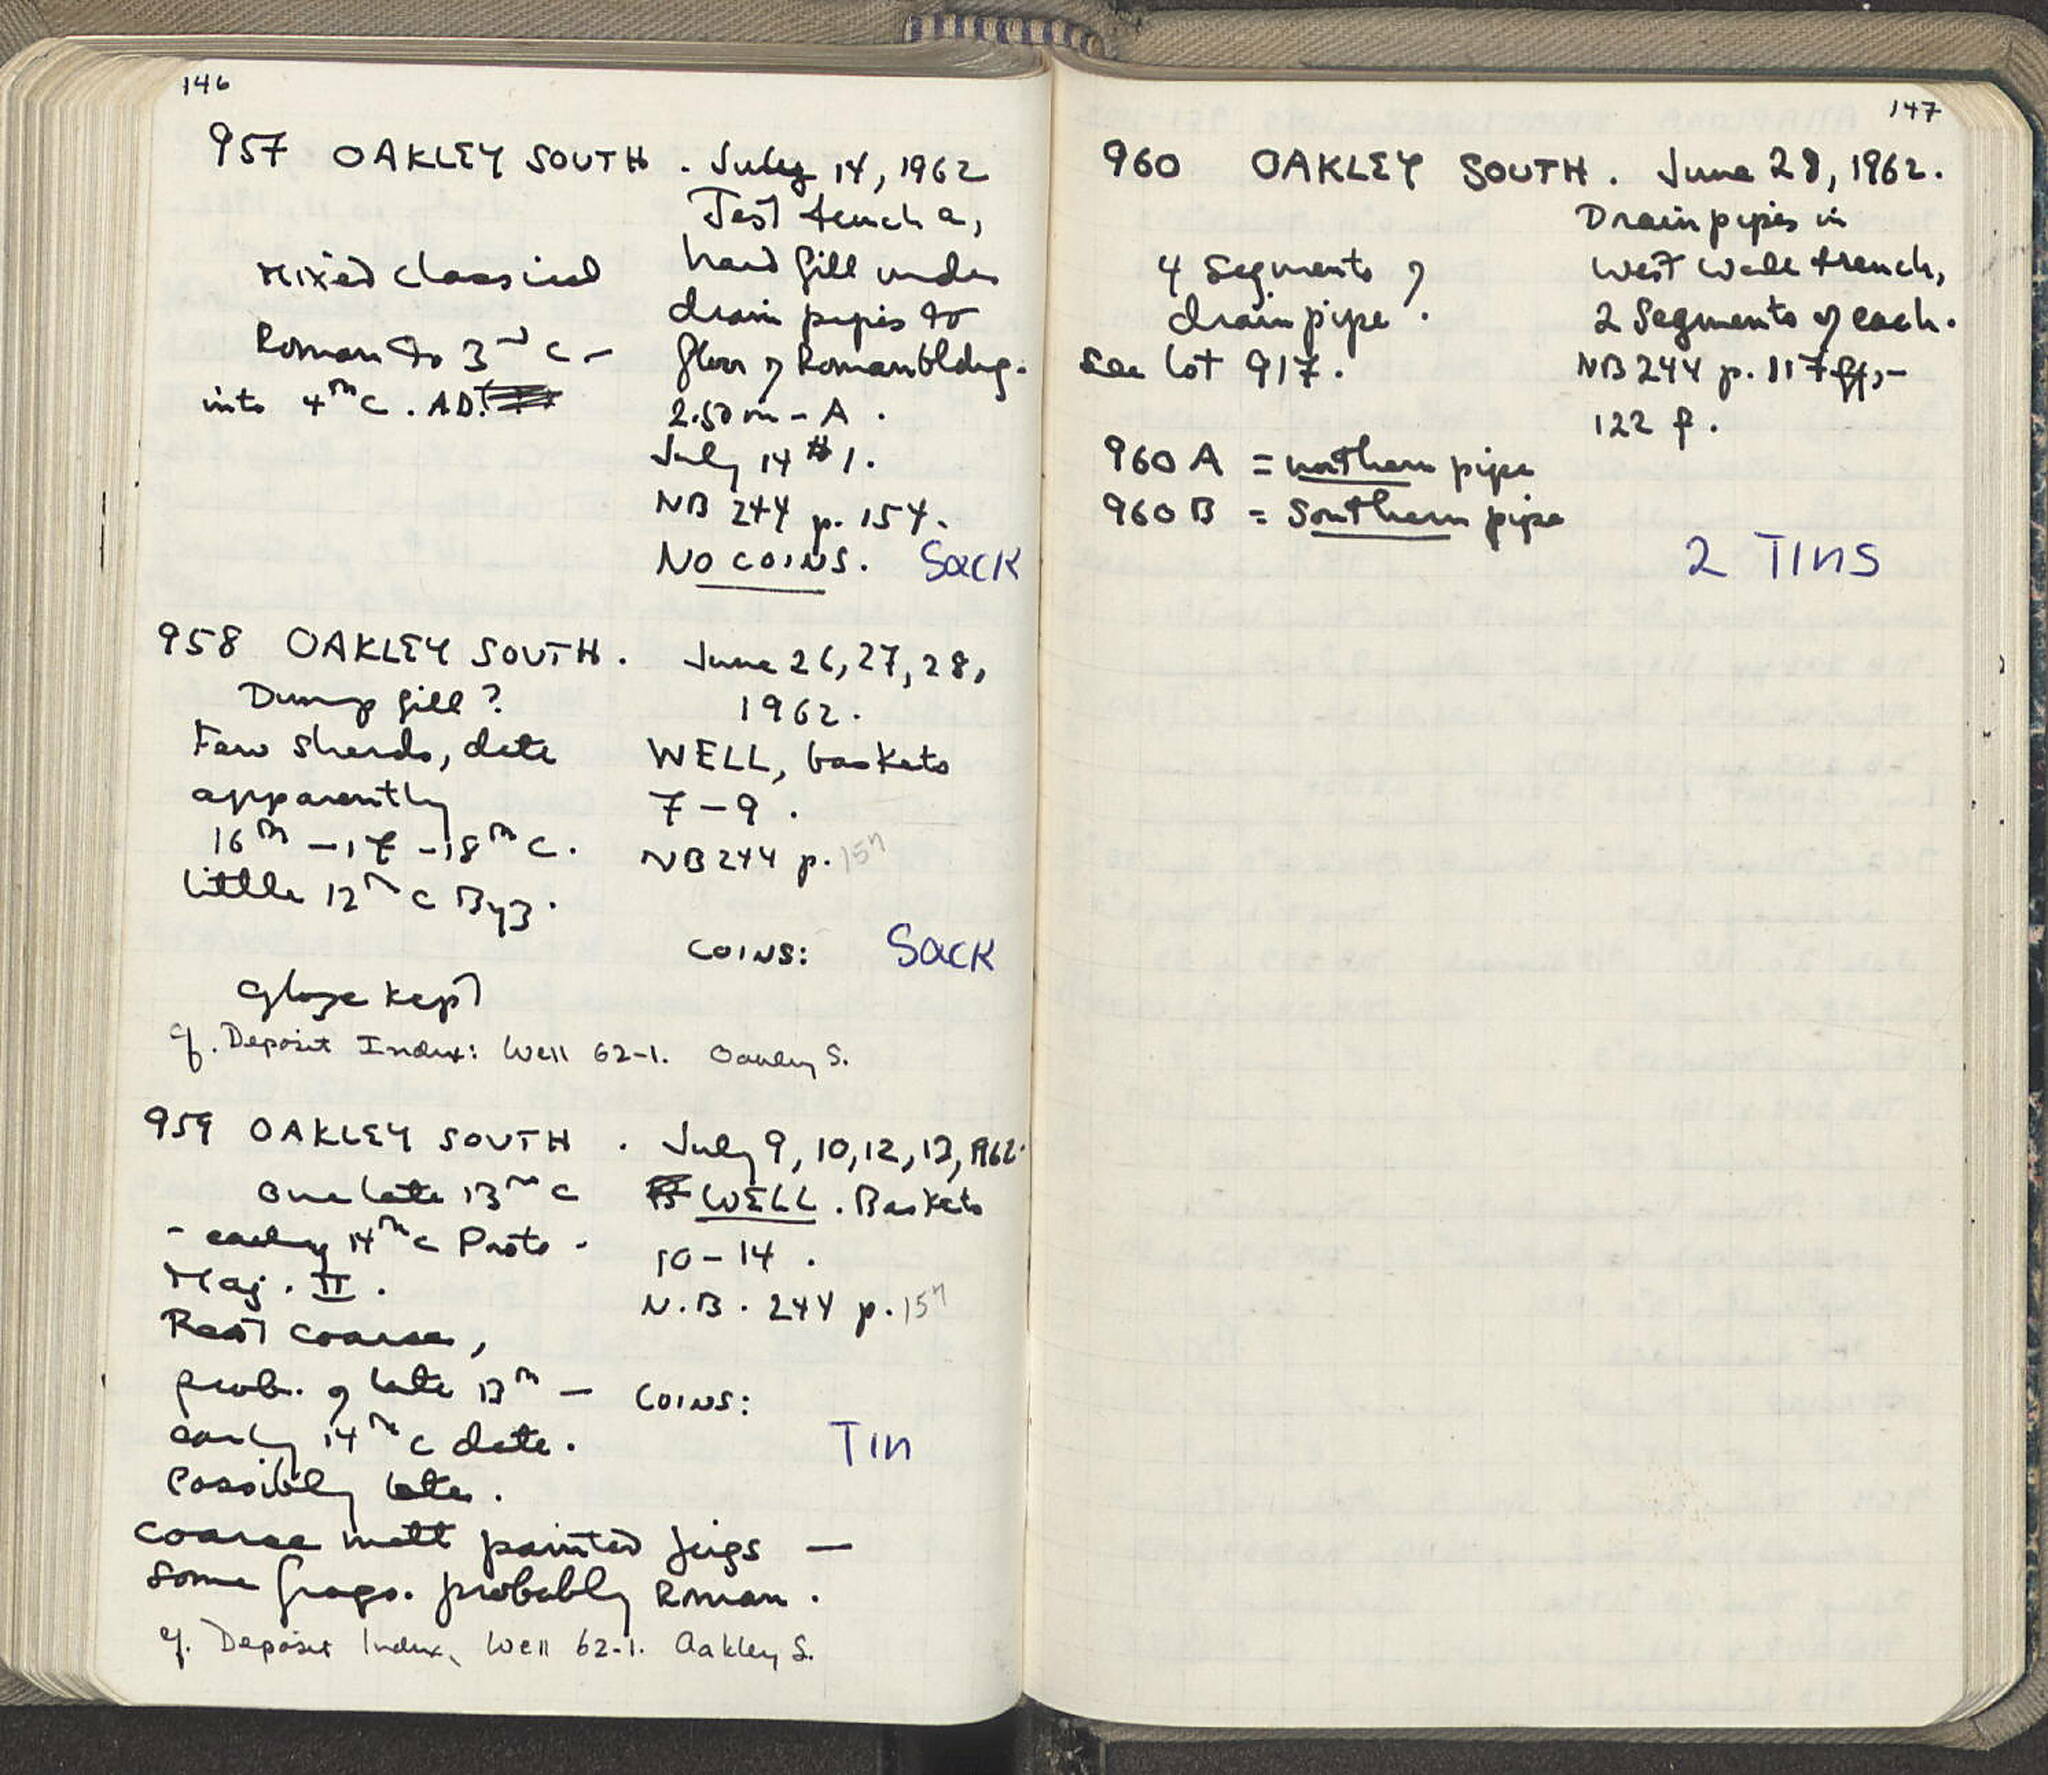 146
957 OAKLEY SOUTH . July 14, 1962
Test trench a,
Mixed classical
hard fill under
drain pipes to
Roman to 3rd c -
floor of Roman bldg.
into 4th c. A.D.
2.50 m - A .
July 14 # 1.
NB 244 p. 154.
NO COINS. Sack
958 OAKLEY SOUTH . June 26, 27, 28,
Dump fill? 1962.
Few sherds, date WELL, baskets
apparently 7-9 .
16th - 17 - 18th c. NB 244 p. 157
little 12th c Byz.
COINS: Sack
Glaze kept
cf. Deposit Index: Well 62-1. Oakley S.
959 OAKLEY SOUTH . July 9, 10, 12, 13, 1962.
One late 13th c WELL . Baskets
- early 14th c Proto - 10-14 .
Maj. II . N.B. 244 p. 157
Rest coarse,
prob. of late 13th - COINS:
early 14th c date. Tin
Possibly later.
Coarse matt painted jugs -
Some frags. probably Roman .
cf. Deposit Index, Well 62-1. Oakley S.
147
960 OAKLEY SOUTH . June 28, 1962.
Drain pipes in
4 Segments of West Wall trench,
drain pipe . 2 Segments of each.
see lot 917. NB 244 p. 117 ff, -
122 f.
960 A = northern pipe
960 B = Southern pipe
2 Tins